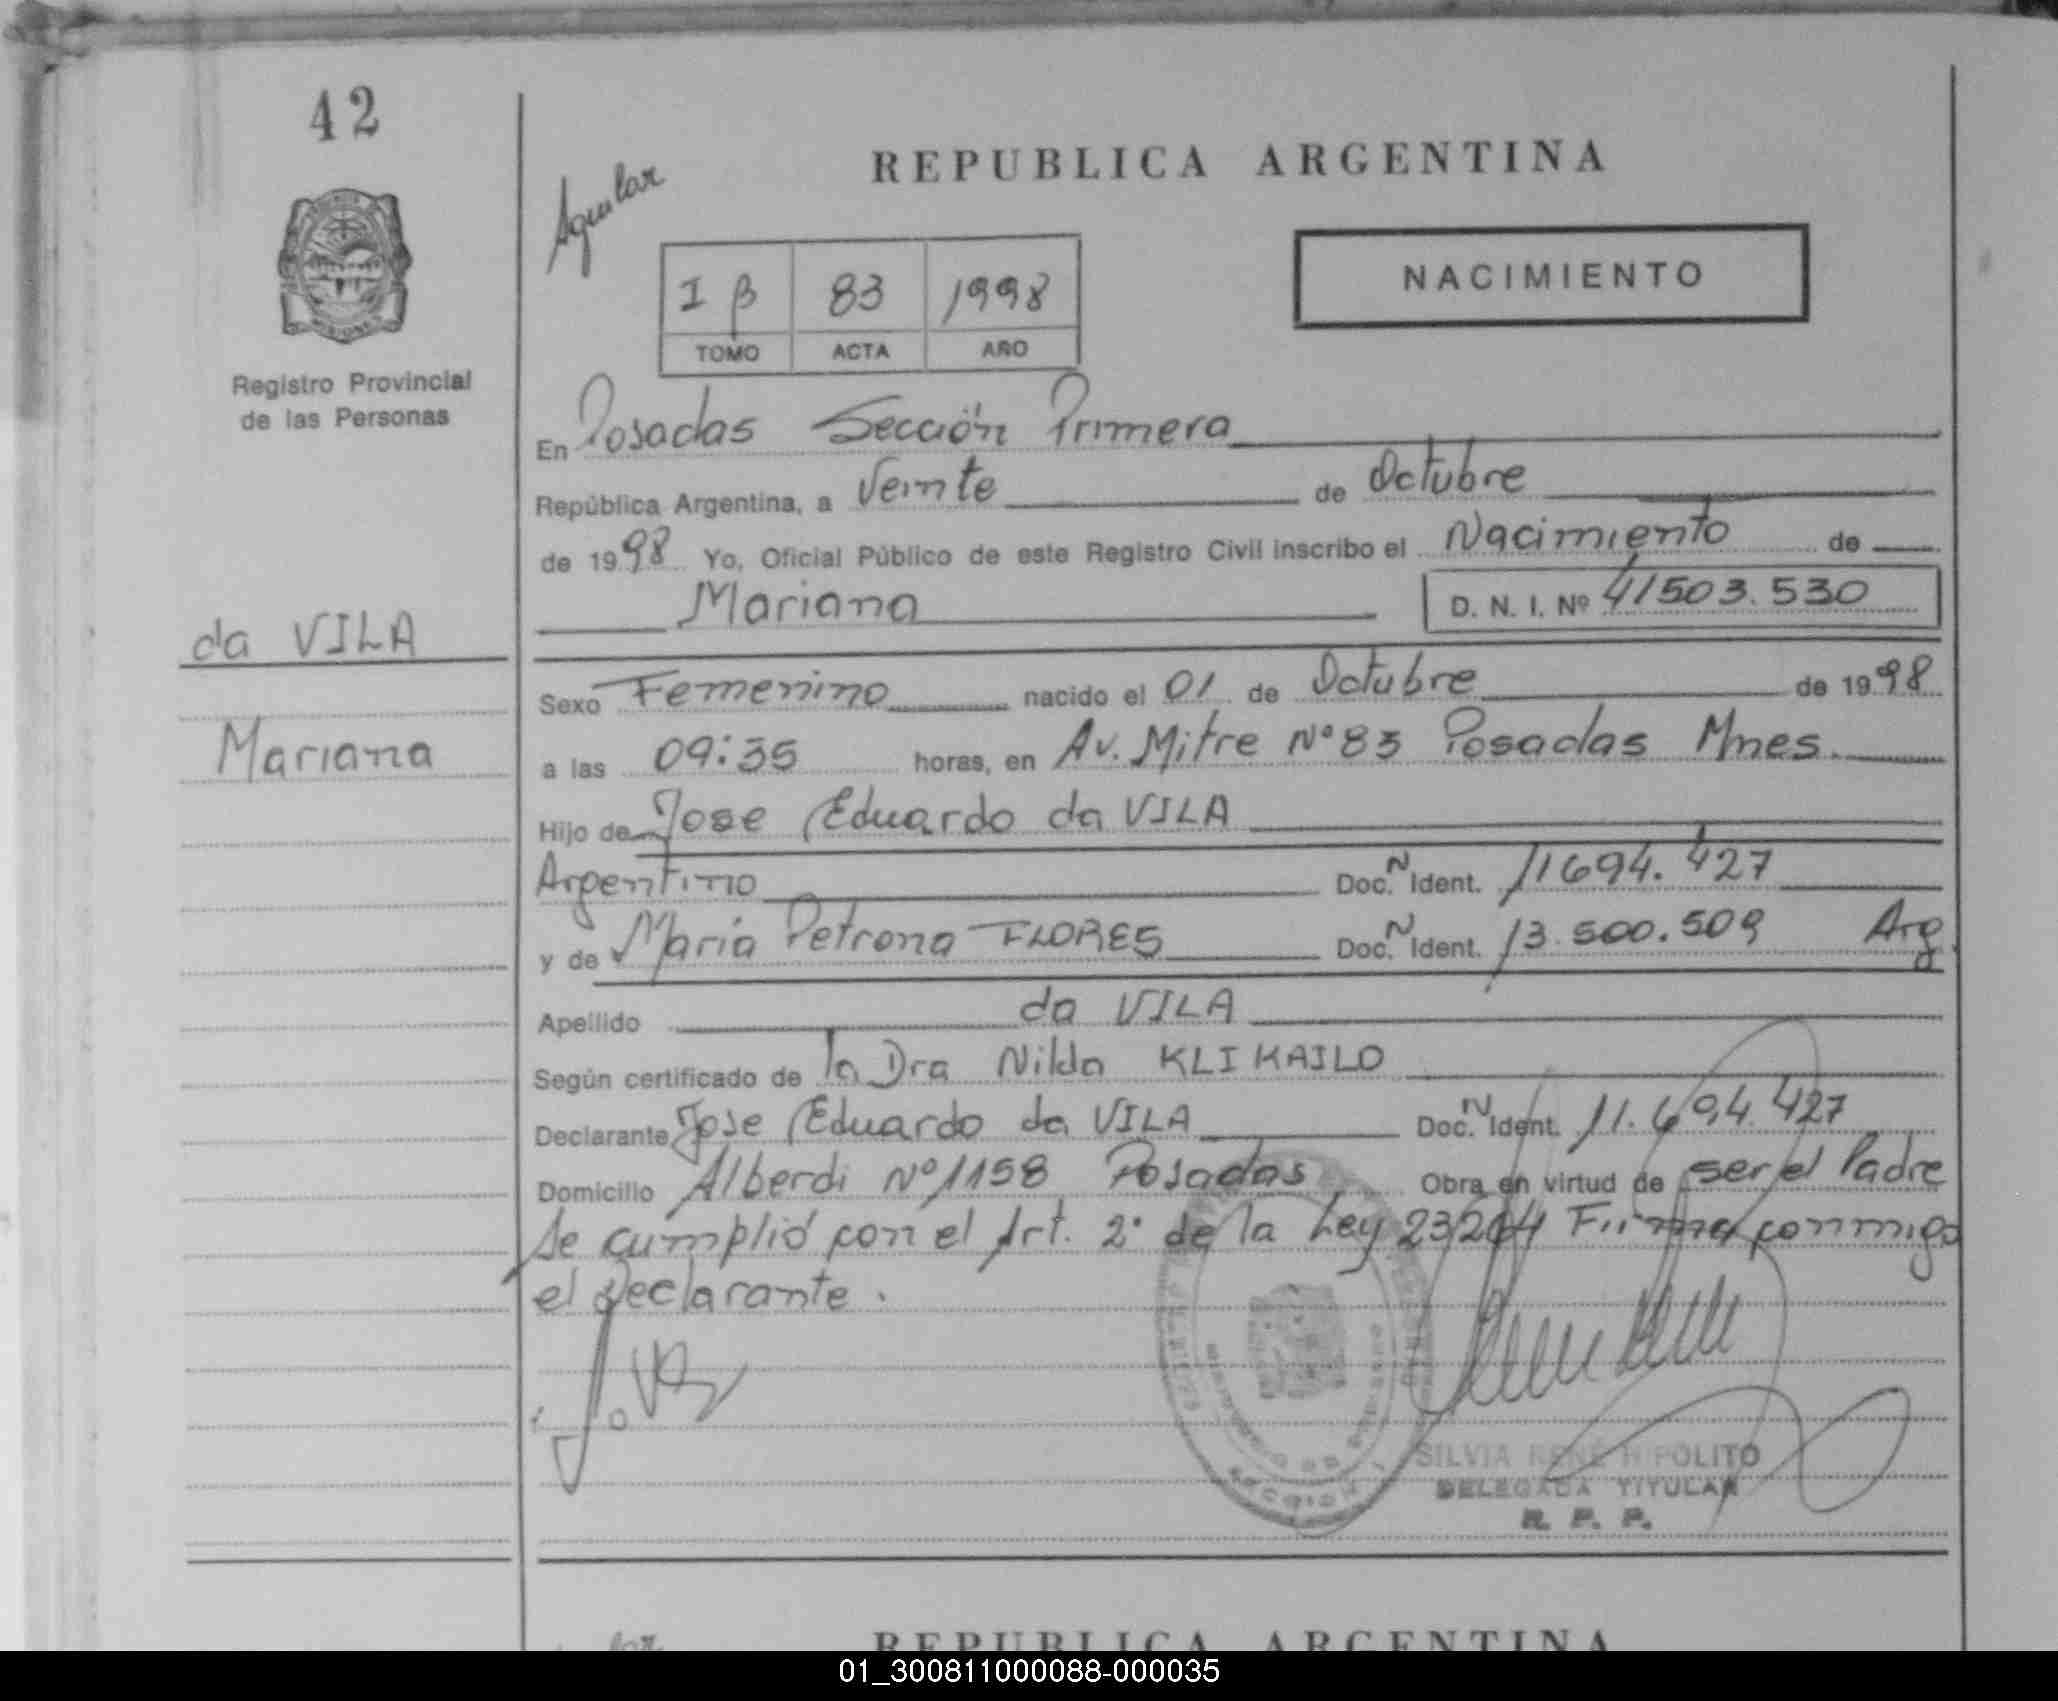 42
REPUBLICA ARGENTINA
Aguilar
NACIMIENTO
I B 83 1998
TOMO ACTA AÑO
Registro Provincial
de las Personas
En Posadas Sección Primera
República Argentina, a Veinte de Octubre
de 1998 Yo, Oficial Público de este Registro Civil inscribo el Nacimiento de
Mariana D. N. I. Nº 41503.530
da VILA
Sexo Femenino nacido el 01 de Octubre de 1998
Mariana
a las 09:35 horas, en Av. Mitre Nº 83 Posadas Mnes.
Hijo de Jose Eduardo da VILA
Argentino Doc. N Ident. 11694.427
y de Maria Petrona FLORES Doc. N Ident. 13.500.509 Arg.
Apellido da VILA
Según certificado de la Dra Nilda KLIKAILO
Declarante Jose Eduardo da VILA Doc. N Ident. 11.694.427
Domicilio Alberdi Nº 1158 Posadas Obra en virtud de ser el Padre
Se cumplió con el Art. 2º de la Ley 23264 Firma conmigo
el Declarante.
SILVIA RENÉ HIPOLITO
DELEGADA TITULAR
R. P. P.
REPUBLICA ARGENTINA
01_300811000088-000035